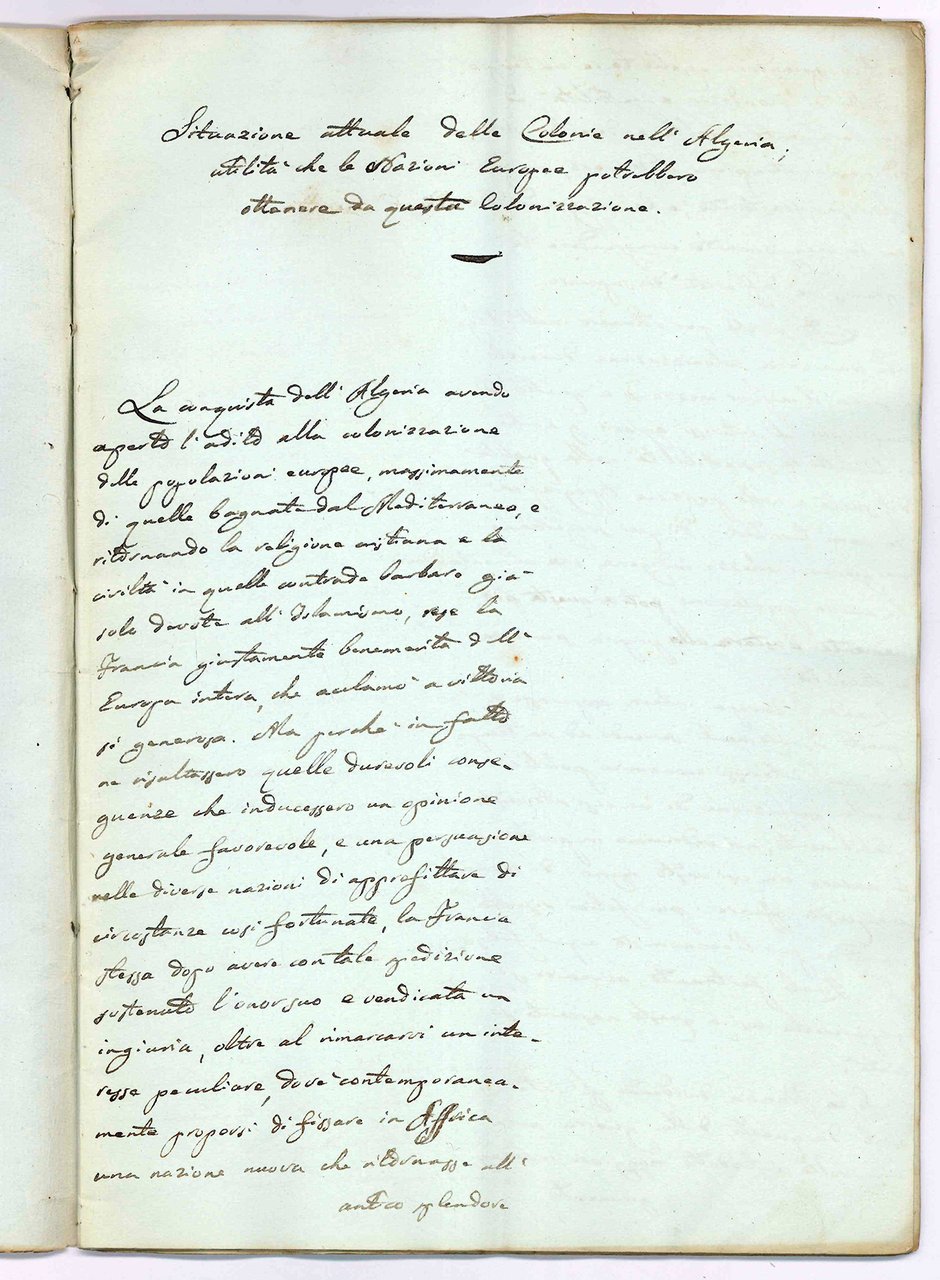 Situazione attuale delle Colonie nell' Algeria;
utilità che le Nazioni Europee potrebbero
ottenere da questa Colonizzazione.
La conquista dell' Algeria avendo
aperto l'adito alla colonizzazione
delle popolazioni europee, massimamente
di quelle bagnate dal Mediterraneo, e
ritornando la religione cristiana e la
civiltà in quelle contrade barbare già
solo devote all' Islamismo, rese la
Francia giustamente benemerita dell'
Europa intera, che aclamò a vittoria
sì generosa. Ma perchè in fatto
ne risultassero quelle durevoli conse-
guenze che inducessero un opinione
generale favorevole, e una persuasione
nelle diverse nazioni di approfittare di
circostanze così fortunate, la Francia
stessa dopo avere con tale spedizione
sostenuto l'onor suo e vendicata un
ingiuria, oltre al rimarcarvi un inte-
resse peculiare, dovè contemporanea-
mente proporsi di fissare in Affrica
una nazione nuova che ritornasse all'
antico splendore